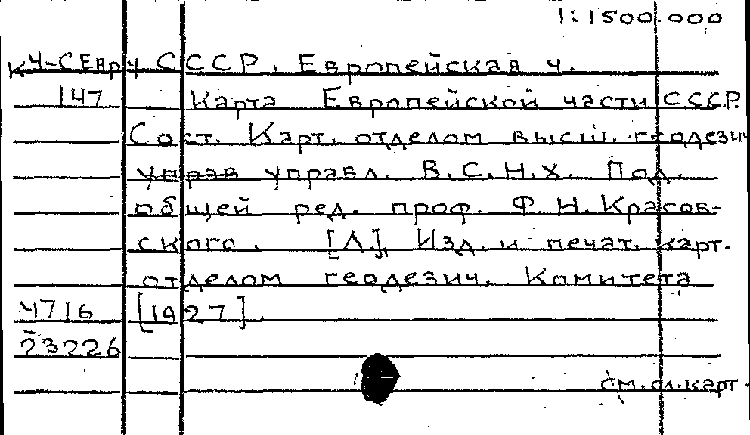 1:1500.000
К4-СЕвр4 СССР. Европейская ч.
147 Карта Европейской части СССР.
Сост. Карт. отделом высш. геодезич
управ управл. В.С.Н.Х. Под
общей ред. проф. Ф.Н.Красов-
ского. [Л.], Изд. и печат. карт.
отделом геодезич. Комитета
4716 [1927].
23226
см.сл.карт.